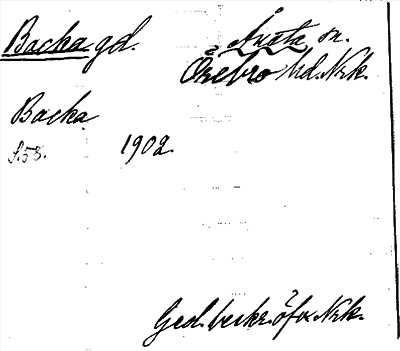 Backa gd. Ånsta sn.
Örebro hd. Nrk.
Backa
S. 58. 1902
Jord. beskr. öfv. Nrk.